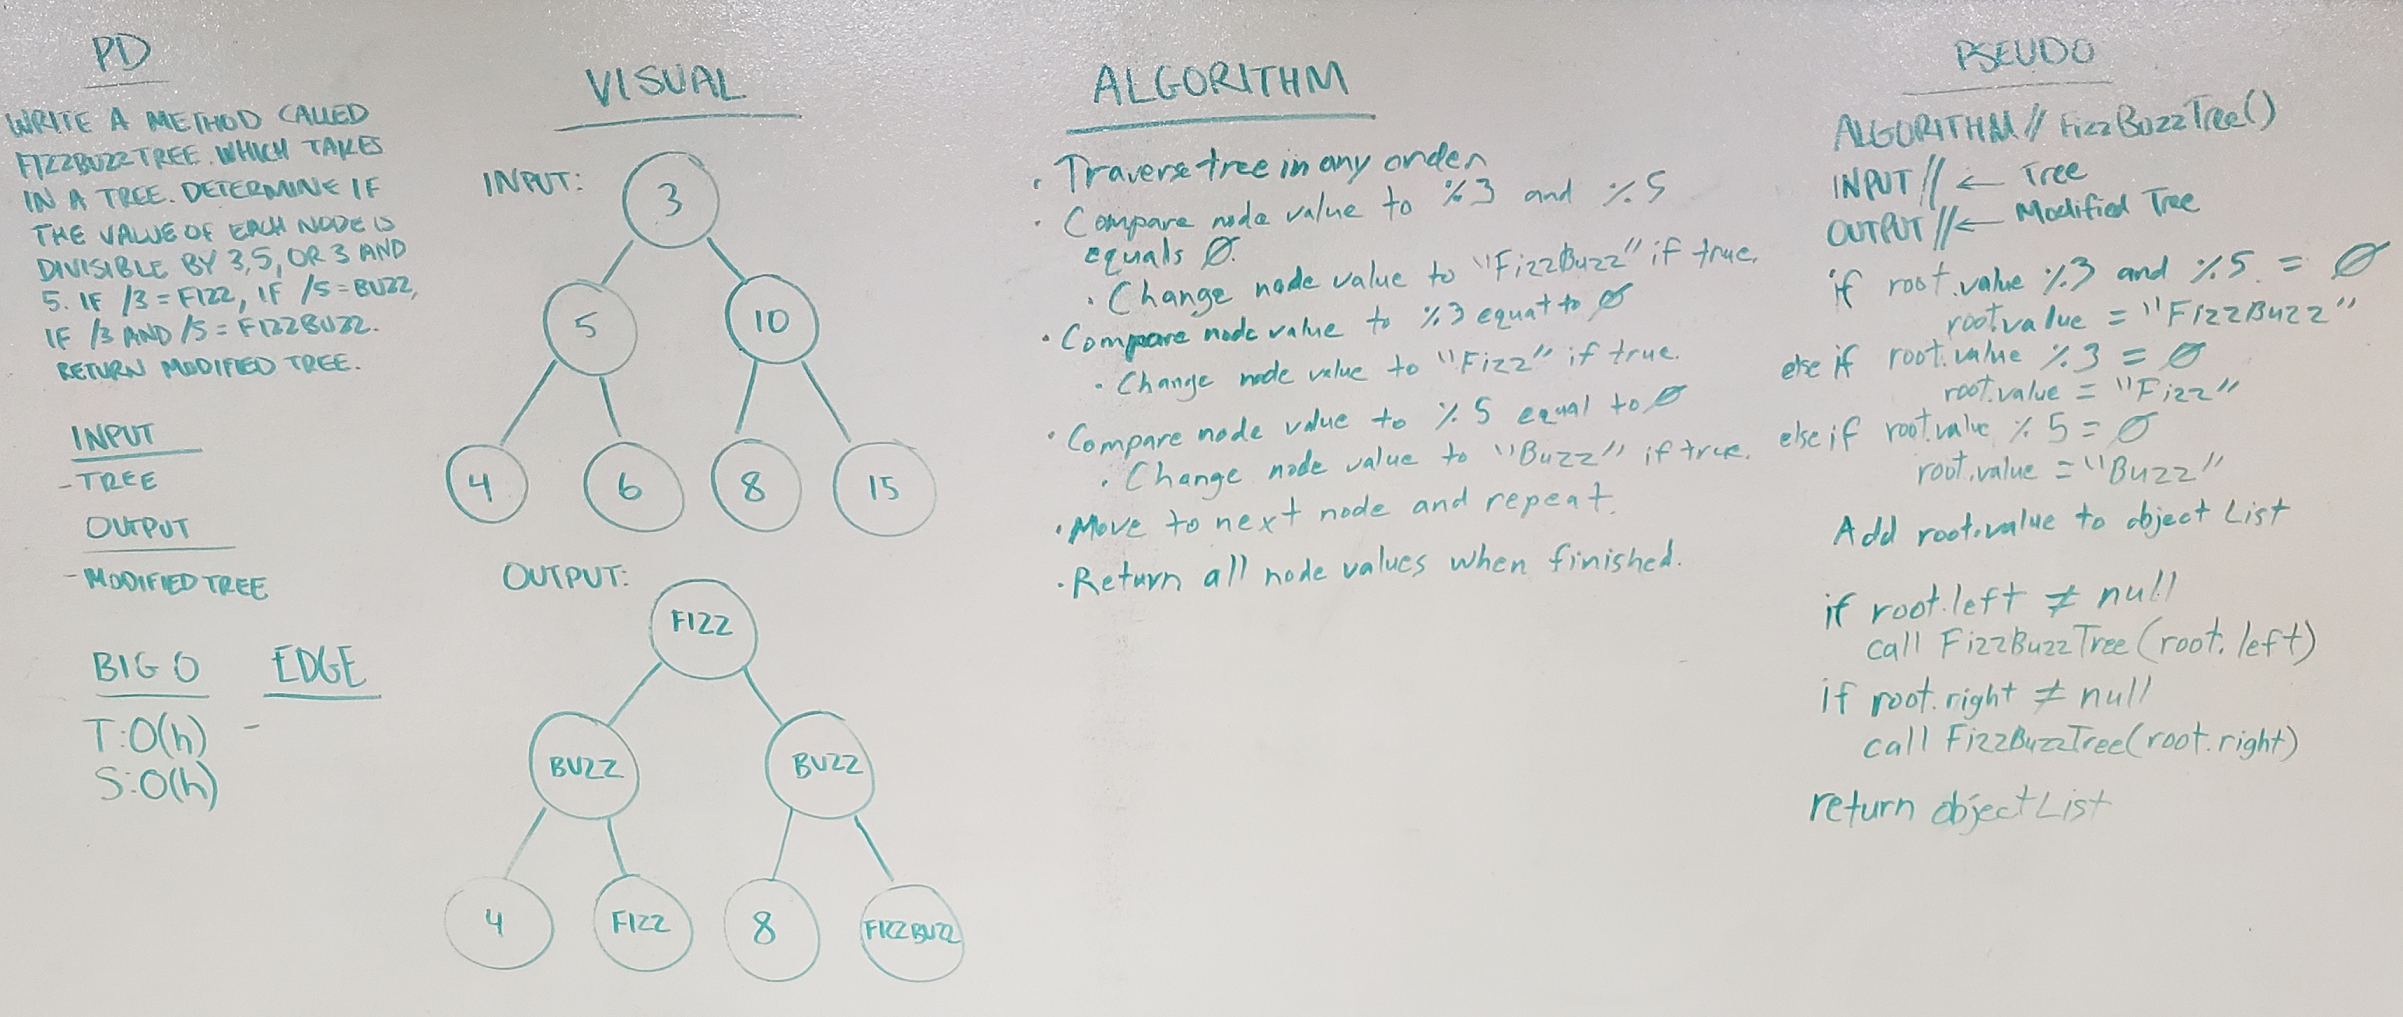 PD
WRITE A METHOD CALLED
FIZZBUZZTREE. WHICH TAKES
IN A TREE. DETERMINE IF
THE VALUE OF EACH NODE IS
DIVISIBLE BY 3, 5, OR 3 AND
5. IF /3 = FIZZ, IF /5 = BUZZ,
IF /3 AND /5 = FIZZBUZZ.
RETURN MODIFIED TREE.
INPUT
- TREE
OUTPUT
- MODIFIED TREE
BIG O
T: O(h)
S: O(h)
EDGE
-
VISUAL
INPUT:
3
5 10
4 6 8 15
OUTPUT:
FIZZ
BUZZ BUZZ
4 FIZZ 8 FIZZBUZZ
ALGORITHM
· Traverse tree in any order
· Compare node value to %3 and %5
equals Ø.
· Change node value to "FizzBuzz" if true.
· Compare node value to %3 equal to Ø
· Change node value to "Fizz" if true.
· Compare node value to %5 equal to Ø
· Change node value to "Buzz" if true.
· Move to next node and repeat.
· Return all node values when finished.
PSEUDO
ALGORITHM // FizzBuzzTree()
INPUT // ← Tree
OUTPUT // ← Modified Tree
if root.value %3 and %5 = Ø
root.value = "FizzBuzz"
else if root.value %3 = Ø
root.value = "Fizz"
else if root.value %5 = Ø
root.value = "Buzz"
Add root.value to object List
if root.left ≠ null
call FizzBuzzTree(root.left)
if root.right ≠ null
call FizzBuzzTree(root.right)
return objectList